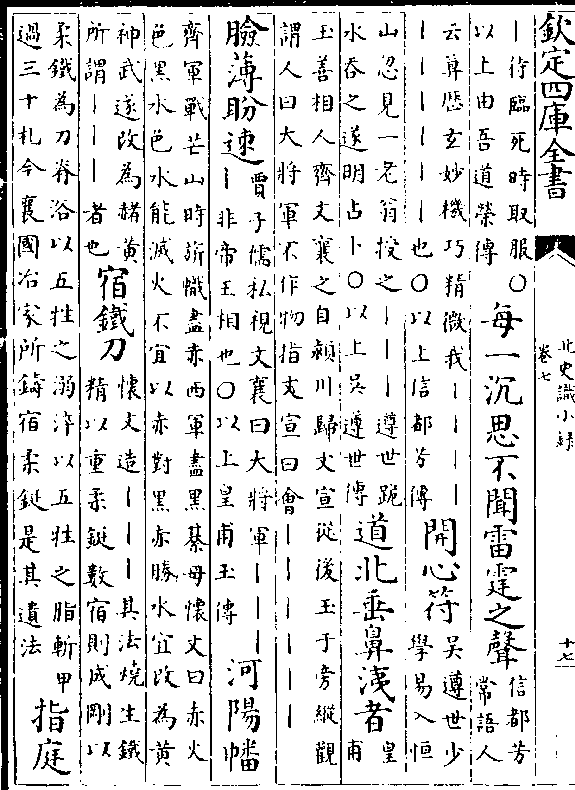 欽定四庫全書
北史識小録
卷七
十七
｜待臨死時取服〇
以上由吾道榮傳
每一沉思不聞雷霆之聲
信都芳
常語人
云算歷玄妙機巧精微我｜｜｜｜
｜｜｜｜｜也〇以上信都芳傳
開心符
吳遵世少
學易入恒
山忽見一老翁授之｜｜｜遵世跪
水吞之遂明占卜〇以上吳遵世傳
道北垂鼻洟者
皇
甫
玉善相人齊文襄之自潁川歸文宣從後玉于旁縱觀
謂人曰大將軍不作物指文宣曰會｜｜｜｜｜｜
臉薄盼速
賈子儒私視文襄曰大將軍｜｜｜
｜非帝王相也〇以上皇甫玉傳
河陽幡
齊軍戰芒山時旂幟盡赤西軍盡黑綦母懷文曰赤火
色黑水色水能滅火不宜以赤對黑赤勝水宜改為黄
神武遂改為赭黄
所謂｜｜｜者也
宿鐵刀
懷文造｜｜｜其法燒生鐵
精以重柔鋌數宿則成剛以
柔鐵為刀脊浴以五牲之溺淬以五牲之脂斬甲
過三十札今襄國冶家所鑄宿柔鋌是其遺法
指庭